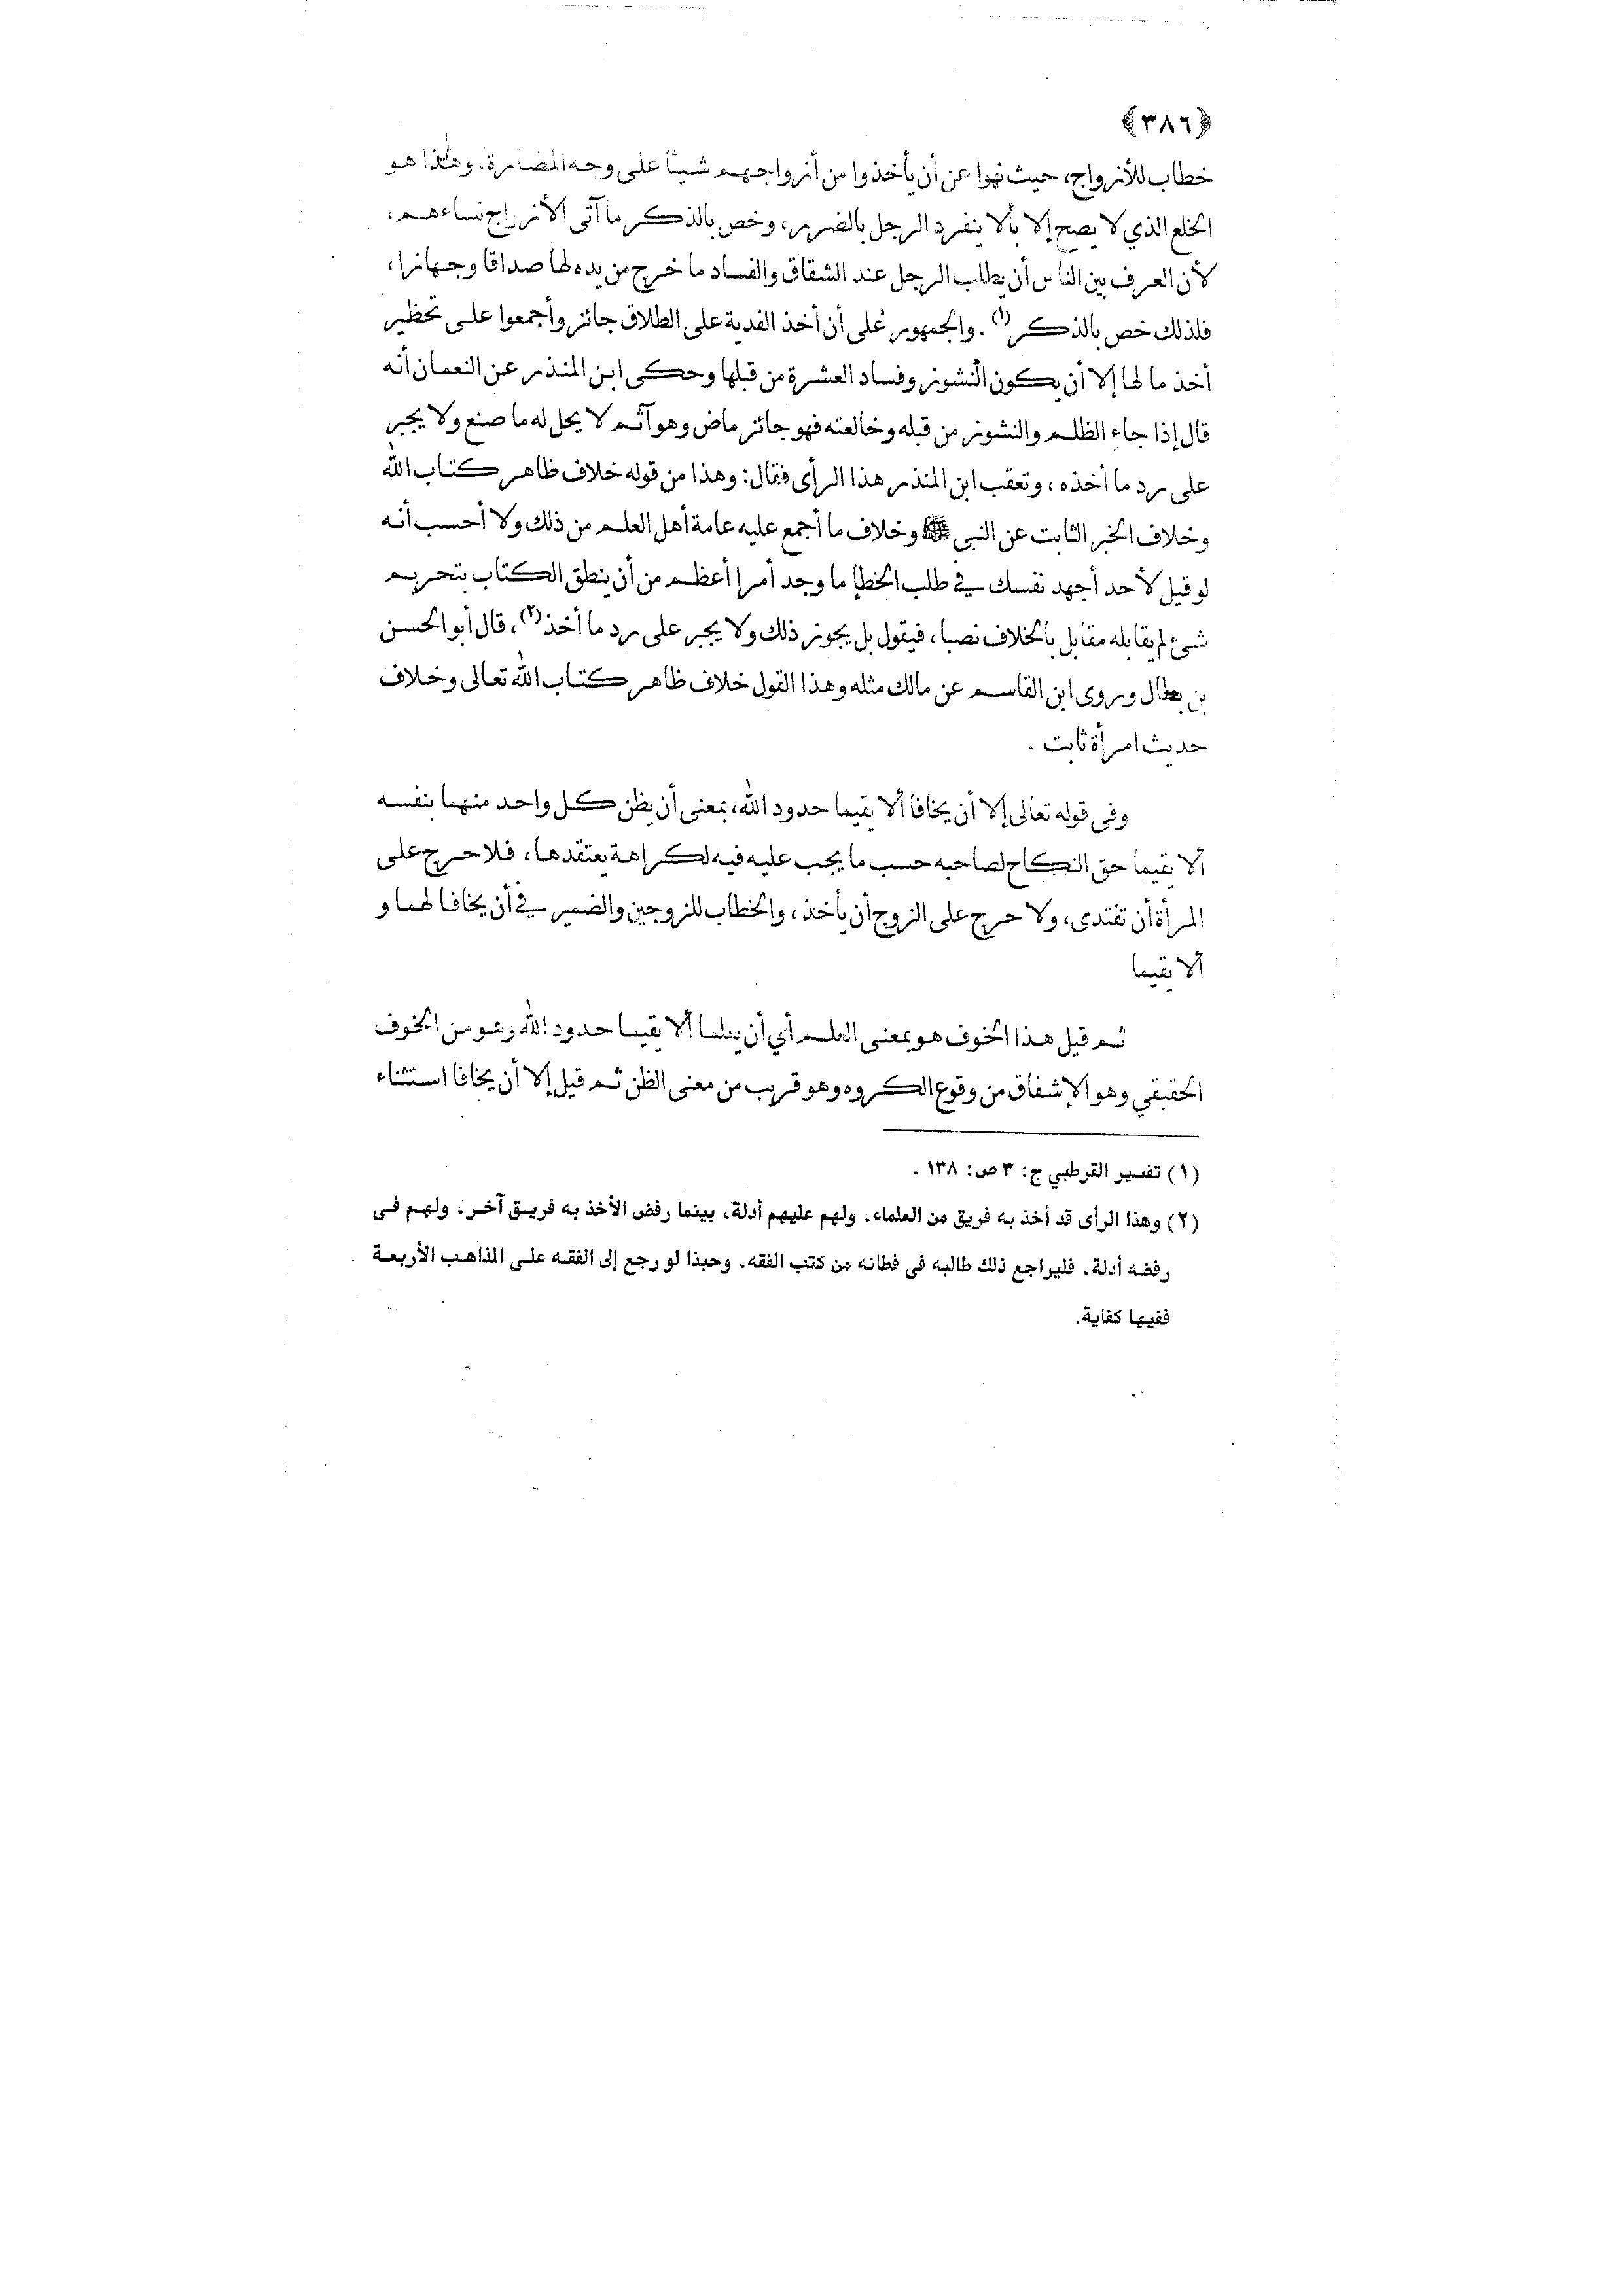 ﴿٣٨٦﴾
خطاب للأزواج، حيث نهوا عن أن يأخذوا من أزواجهم شيئا على وجه المضارة. وهذا هو
الخلع الذي لا يصح إلا بألا ينفرد الرجل بالضرر، وخص بالذكر ما آتى الأزواج نساءهم،
لأن العرف بين الناس أن يطلب الرجل عند الشقاق والفساد ما خرج من يده لها صداقا وجهازا،
فلذلك خص بالذكر (١). والجمهور على أن أخذ الفدية على الطلاق جائز وأجمعوا على تحظير
أخذ ما لها إلا أن يكون النشوز وفساد العشرة من قبلها وحكى ابن المنذر عن النعمان أنه
قال إذا جاء الظلم والنشوز من قبله وخالعته فهو جائز ماض وهو آثم لا يحل له ما صنع ولا يجبر
على رد ما أخذه، وتعقب ابن المنذر هذا الرأى فقال: وهذا من قوله خلاف ظاهر كتاب الله
وخلاف الخبر الثابت عن النبي ﷺ وخلاف ما أجمع عليه عامة أهل العلم من ذلك ولا أحسب أنه
لو قيل لأحد أجهد نفسك في طلب الخطإ ما وجد أمرا أعظم من أن ينطق الكتاب بتحريم
شئ لم يقابله مقابل بالخلاف نصبا، فيقول بل يجوز ذلك ولا يجبر على رد ما أخذ (٢)، قال أبو الحسن
بن بطال وروى ابن القاسم عن مالك مثله وهذا القول خلاف ظاهر كتاب الله تعالى وخلاف
حديث امرأة ثابت .
وفى قوله تعالى إلا أن يخافا ألا يقيما حدود الله، بمعنى أن يظن كل واحد منهما بنفسه
ألا يقيما حق النكاح لصاحبه حسب ما يجب عليه فيه لكراهة يعتقدها، فلا حرج على
المرأة أن تفتدى، ولا حرج على الزوج أن يأخذ، والخطاب للزوجين والضمير في أن يخافا لهما و
ألا يقيما
ثم قيل هذا الخوف هو بمعنى العلم أي أن يعلما ألا يقيما حدود الله وهو من الخوف
الحقيقي وهو الإشفاق من وقوع الكروه وهو قريب من معنى الظن ثم قيل إلا أن يخافا استثناء
(١) تفسير القرطبي ج: ٣ ص: ١٣٨ .
(٢) وهذا الرأى قد أخذ به فريق من العلماء، ولهم عليهم أدلة، بينما رفض الأخذ به فريق آخر، ولهم فى
رفضه أدلة. فليراجع ذلك طالبه فى فطانه من كتب الفقه، وحبذا لو رجع إلى الفقه على المذاهب الأربعة
ففيها كفاية.